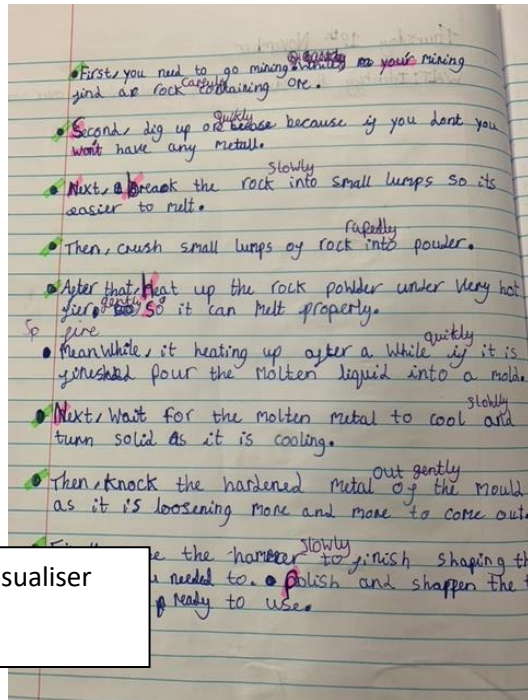 • First, you need to go mining mining
find an rock carefully containing ore.
• Second, dig up ore quickly because if you dont you
won't have any metall.
• Next, break the rock slowly into small lumps so its
easier to melt.
• Then, crush small lumps of rock rapedly into powder.
• After that, heat up the rock powder under very hot
fier gently So it can melt properly.
Sp fire
• Meanwhile, it heating up after a while quickly if it is
fineshed pour the molten liquid into a mold.
• Next, Wait for the molten metal to cool slowly and
turn solid as it is cooling.
• Then, knock the hardened metal out gently of the mould
as it is loosening more and more to come out.
the hammer slowly to finish shaping th
needed to. • Polish and sharpen the t
ready to use.
sualiser